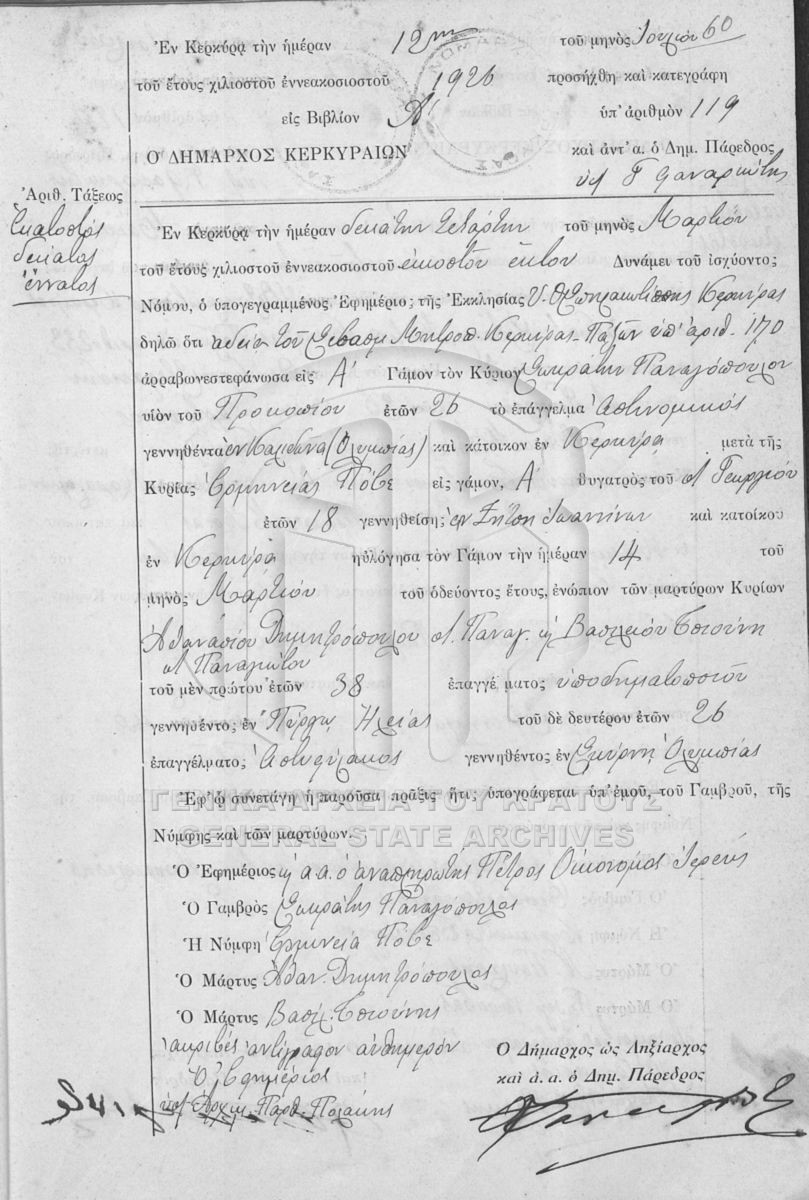 Ἐν Κερκύρᾳ τὴν ἡμέραν 12ην τοῦ μηνὸς Ἰουλίου 60
τοῦ ἔτους χιλιοστοῦ ἐννεακοσιοστοῦ 1926 προσήχθη καὶ κατεγράφη
εἰς Βιβλίον Α' ὑπ' ἀριθμὸν 119
Ὁ ΔΗΜΑΡΧΟΣ ΚΕΡΚΥΡΑΙΩΝ καὶ ἀντ' α. ὁ Δημ. Πάρεδρος
Ἀριθ. Τάξεως
Ἑκατοστὸς
δέκατος
ἔννατος
Ἐν Κερκύρᾳ τὴν ἡμέραν δεκάτην τετάρτην τοῦ μηνὸς Μαρτίου
τοῦ ἔτους χιλιοστοῦ ἐννεακοσιοστοῦ εἰκοστοῦ ἕκτου Δυνάμει τοῦ ἰσχύοντος
Νόμου, ὁ ὑπογεγραμμένος Ἐφημέριος τῆς Ἐκκλησίας Κερκύρας
δηλῶ ὅτι ἀδείᾳ τοῦ Σεβασμ. Μητροπ. Κερκύρας Παξῶν ὑπ' ἀριθ. 170
ἀρραβωνεστεφάνωσα εἰς Α' Γάμον τὸν Κύριον Σωκράτην Παναγόπουλον
υἱὸν τοῦ Προκοπίου ἐτῶν 26 τὸ ἐπάγγελμα Ἀστυνομικὸς
γεννηθέντα ἐν (Ὀλυμπίας) καὶ κάτοικον ἐν Κερκύρᾳ μετὰ τῆς
Κυρίας Ἑρμηνείας Πόβε εἰς γάμον, Α' θυγατρὸς τοῦ Γεωργίου
ἐτῶν 18 γεννηθείσης ἐν Ζίτσῃ Ἰωαννίνων καὶ κατοίκου
ἐν Κερκύρᾳ ηὐλόγησα τὸν Γάμον τὴν ἡμέραν 14 τοῦ
μηνὸς Μαρτίου τοῦ ὁδεύοντος ἔτους, ἐνώπιον τῶν μαρτύρων Κυρίων
Ἀθανασίου Δημητρόπουλου Παναγ. Βασιλείου Τσιούνη
Παναγιώτου
τοῦ μὲν πρώτου ἐτῶν 38 ἐπαγγέματος ὑποδηματοποιοῦ
γεννηθέντος ἐν Πύργῳ Ἠλείας τοῦ δὲ δευτέρου ἐτῶν 26
ἐπαγγέλματος Ἀστυφύλακος γεννηθέντος ἐν Ὀλυμπίας
Ἐφ' ᾧ συνετάγη ἡ παροῦσα πρᾶξις ἥτις ὑπογράφεται ὑπ' ἐμοῦ, τοῦ Γαμβροῦ, τῆς
ΓΕΝΙΚΑ ΑΡΧΕΙΑ ΤΟΥ ΚΡΑΤΟΥΣ
Νύμφης καὶ τῶν μαρτύρων.
GENERAL STATE ARCHIVES
Ὁ Ἐφημέριος α.α. ὁ ἀναπληρωτὴς Πέτρος Οἰκονόμος Ἱερεὺς
Ὁ Γαμβρὸς Σωκράτης Παναγόπουλος
Ἡ Νύμφη Ἑρμηνεία Πόβε
Ὁ Μάρτυς Ἀθαν. Δημητρόπουλος
Ὁ Μάρτυς Βασίλ. Τσιούνης
Ἀκριβὲς ἀντίγραφον αὐθημερόν
Ὁ Ἐφημέριος
Ὁ Δήμαρχος ὡς Ληξίαρχος
καὶ ἀ. α. ὁ Δημ. Πάρεδρος